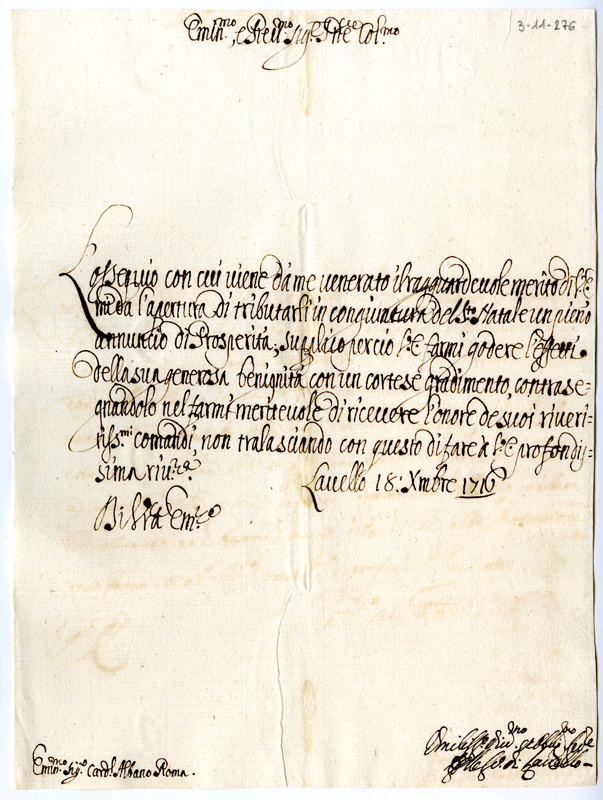 3-11-276
Emin.mo, e Rev.mo Sig.re P.rone Col.mo
L'ossequio con cui viene da me venerato il ragguardevole merito di V.E.
mi dà l'apertura di tributarli in congiuntura del S.to Natale un pieno
annuncio di Prosperità; supplico perciò V.E. farmi godere l'effetti
della sua generosa benignità con un cortese gradimento, contrase=
gnandolo nel farmi meritevole di ricevere l'onore de suoi riveri=
tiss.mi comandi, non tralasciando con questo di fare a V.E. profondis=
sima riv.za
Lavello 18: Xmbre 1716
Di V.ra Em.za
Emin.mo Sig.r Card.l Albano Roma.